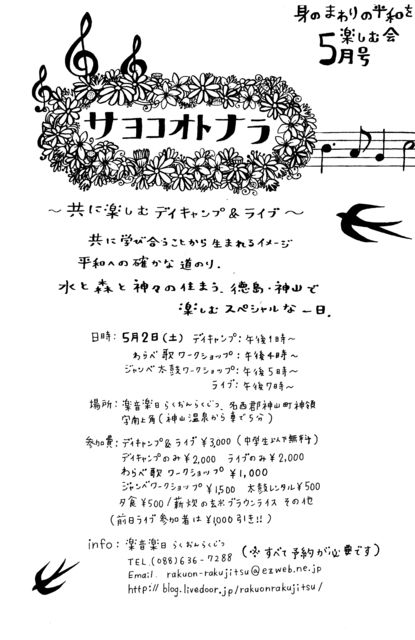 身のまわりの平和を
楽しむ会
5月号
サヨコオトナラ
〜共に楽しむ デイキャンプ&ライブ〜
共に学び合うことから生まれるイメージ
平和への確かな道のり.
水と森と神々の住まう、徳島・神山で
楽しむスペシャルな一日.
日時: 5月2日(土) デイキャンプ:午後1時〜
わらべ歌ワークショップ:午後4時〜
ジャンベ太鼓ワークショップ:午後5時〜
ライブ:午後7時〜
場所: 楽音楽日らくおんらくじつ、名西郡神山町神領
字南上角(神山温泉から車で5分)
参加費: デイキャンプ&ライブ ¥3,000 (中学生以下無料)
デイキャンプのみ ¥2,000 ライブのみ ¥2,000
わらべ歌 ワークショップ ¥1,000
ジャンベワークショップ ¥1,500 太鼓レンタル ¥500
夕食 ¥500/薪炊の玄米ブラウンライス その他
(前日ライブ参加者は ¥1,000引き!!)
info: 楽音楽日 らくおんらくじつ (※すべて予約が必要です)
TEL.(088)636-7288
Email. rakuon-rakujitsu@ezweb.ne.jp
http://blog.livedoor.jp/rakuonrakujitsu/